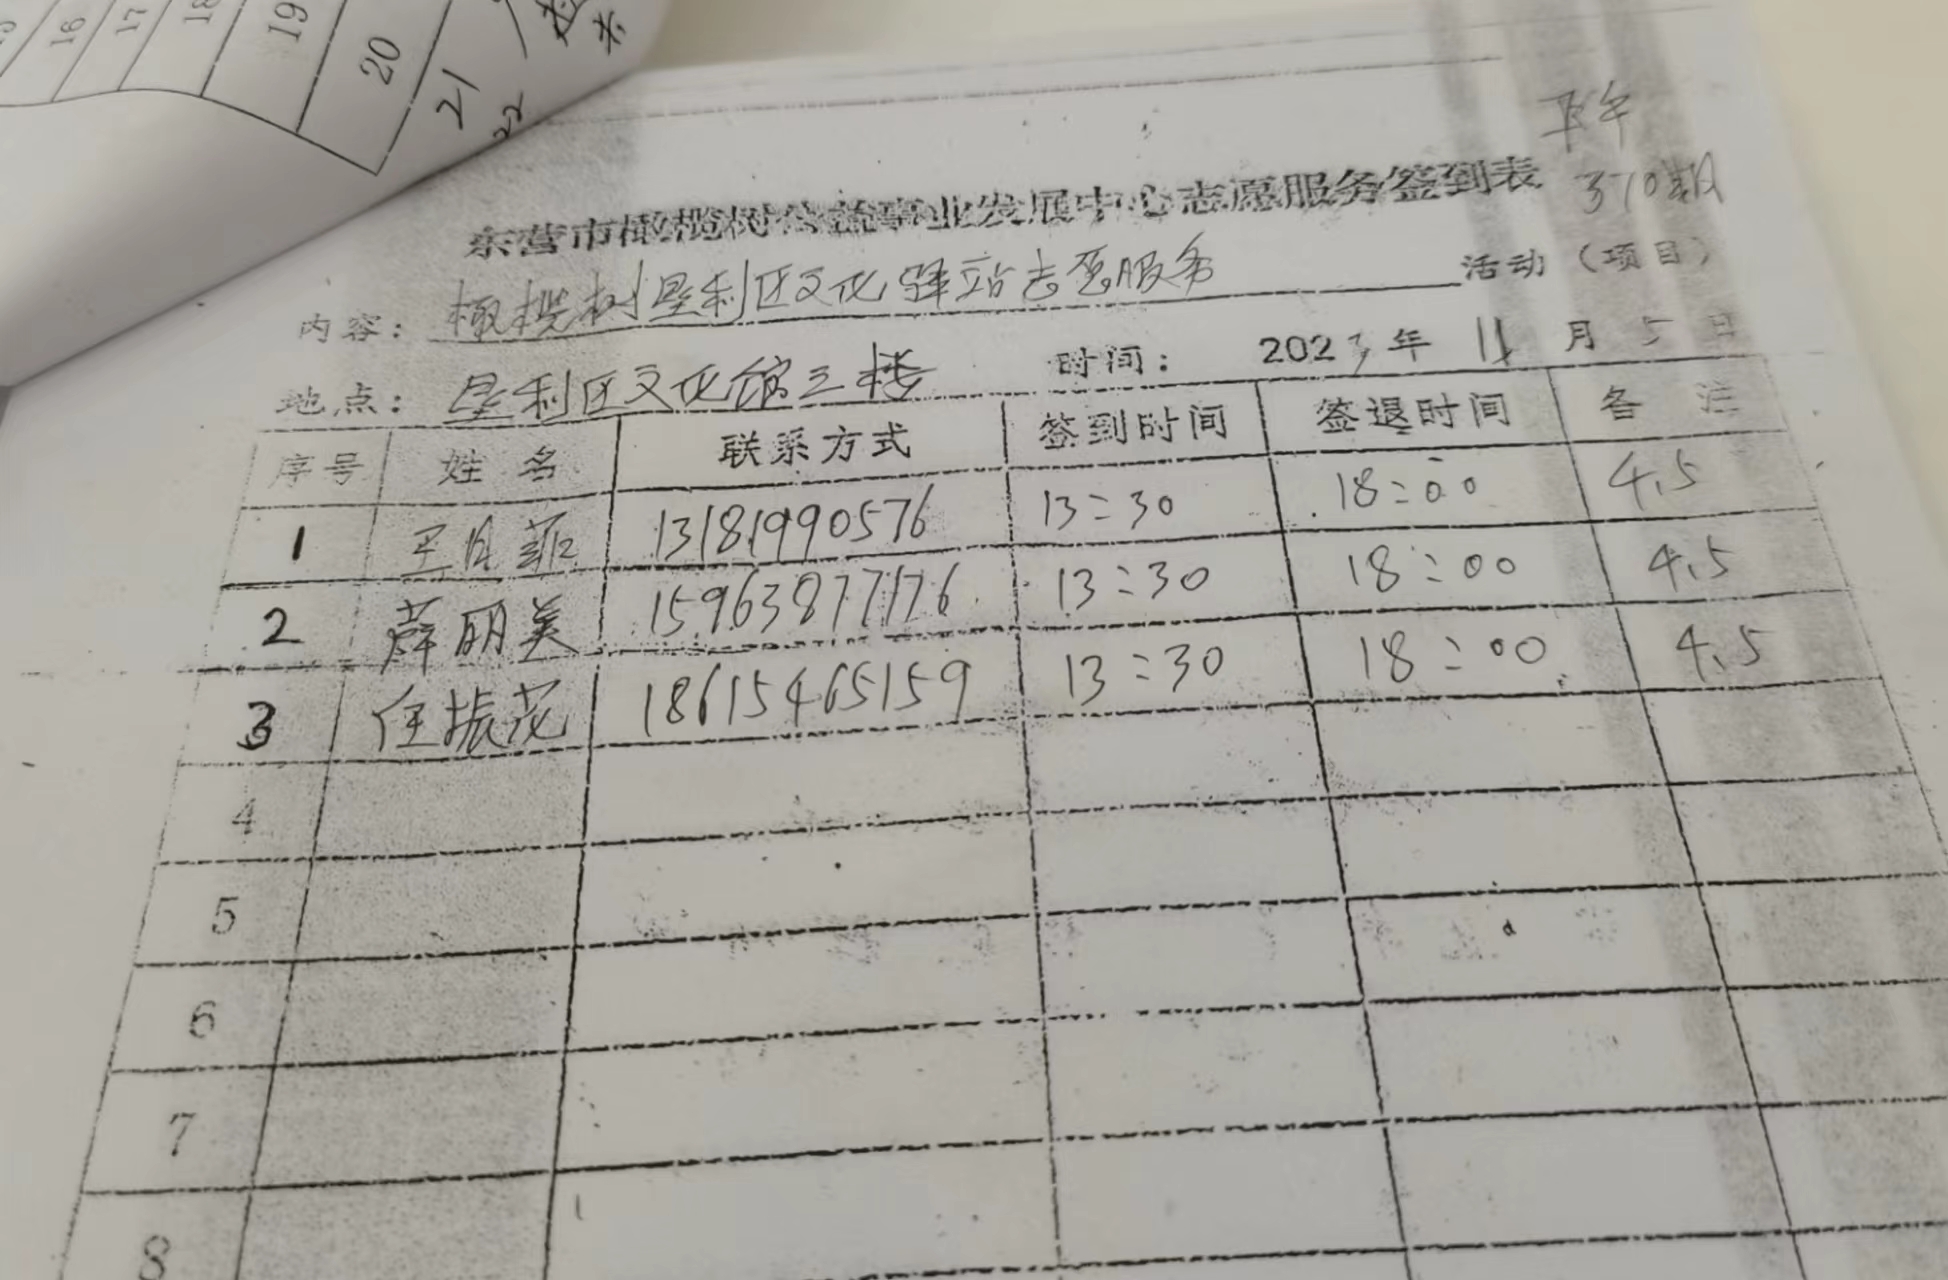 16 17 18 19 20 21 22
下午
370期
东营市橄榄树公益事业发展中心志愿服务签到表
内容： 橄榄树垦利区文化驿站志愿服务 活动（项目）
地点： 垦利区文化馆三楼 时间： 2023年 11 月 5 日
序号 姓 名 联系方式 签到时间 签退时间 备 注
1 王月菲 13181990576 13:30 18:00 4.5
2 薛丽美 15963877176 13:30 18:00 4.5
3 任振花 18615465159 13:30 18:00 4.5
4
5
6
7
8